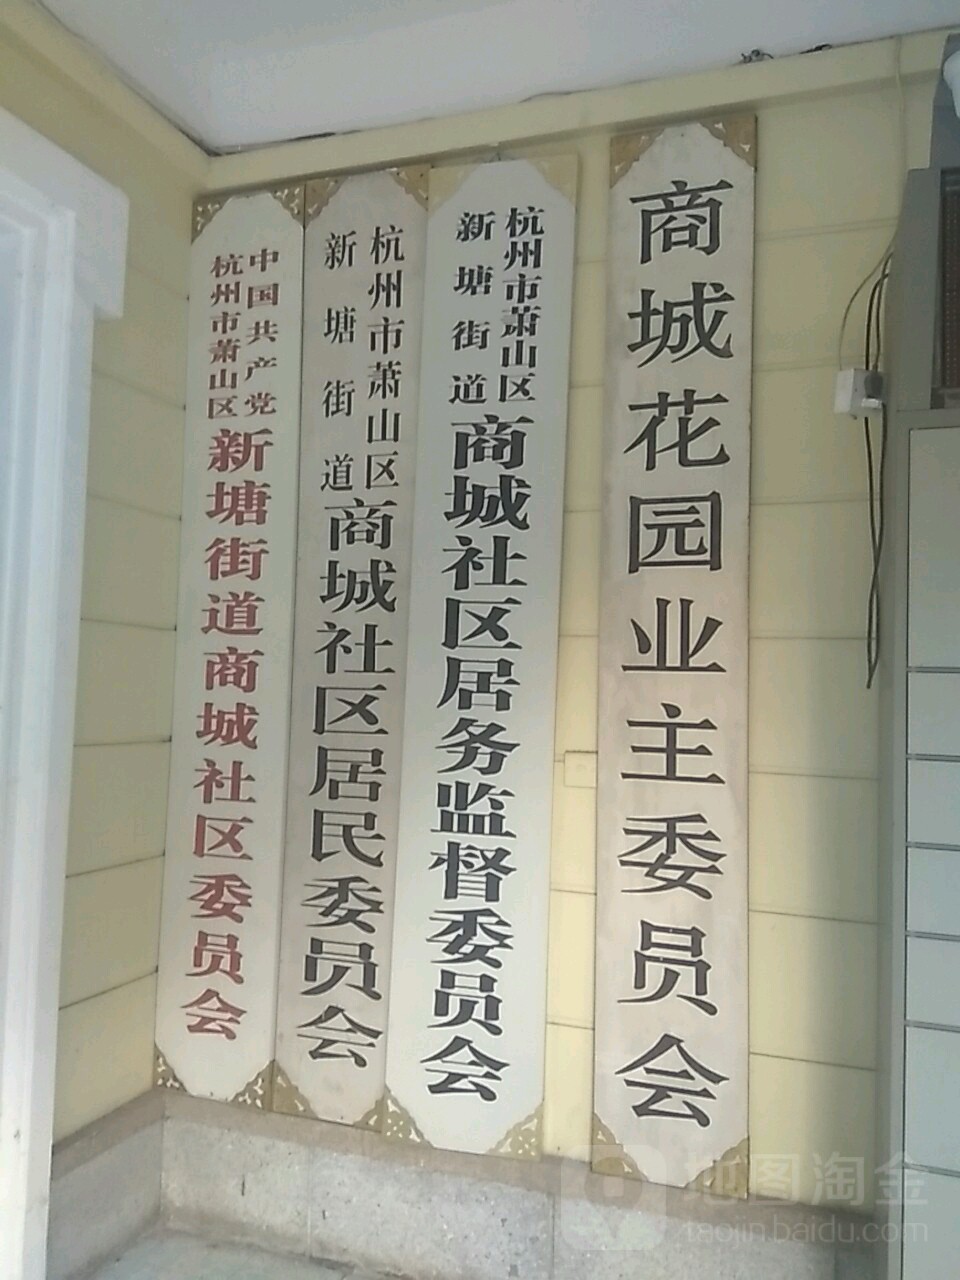 中国共产党
杭州市萧山区
新塘街道商城社区委员会
杭州市萧山区
新塘街道
商城社区居民委员会
杭州市萧山区
新塘街道
商城社区居务监督委员会
商城花园业主委员会
地图淘金
taojin.baidu.com